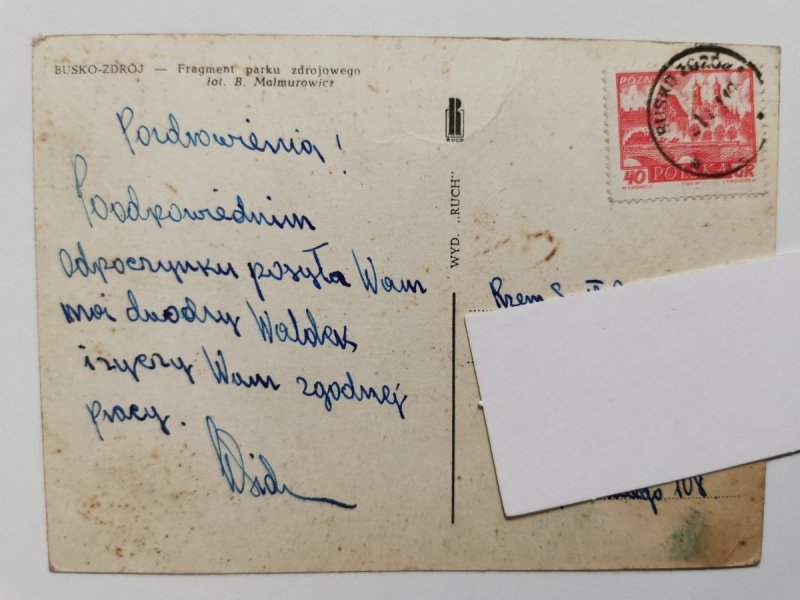 BUSKO-ZDRÓJ — Fragment parku zdrojowego
fot. B. Małmurowicz
Pozdrowienia!
Po odpowiednim
odpoczynku posyła Wam
mój dwodry Waldek
i życzy Wam zgodnej
pracy.
R
RUCH
WYD. „RUCH"
POZN
40 POLSKA GR
BUSKO ZDRÓJ
Rzem
108